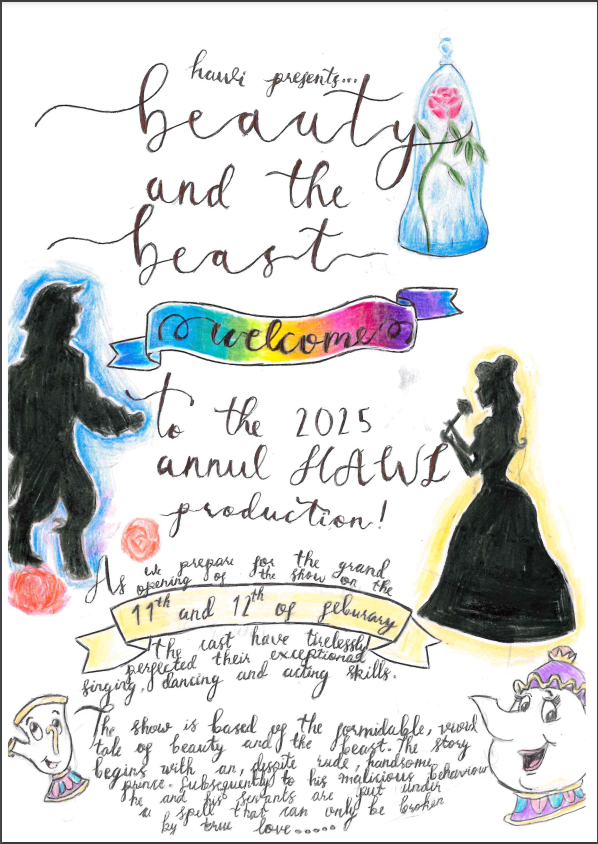 hawi presents...
beauty
and the
beast
welcome
to the 2025
annul HAWI
production!
As we prepare for the grand
opening of the show on the
11th and 12th of feburary
the cast have tirelessly
perfected their exceptional
singing, dancing and acting skills.
The show is based of the formidable, vivid
tale of beauty and the beast. The story
begins with an, dispite rude, handsome
prince. Subsequently to his malicious behaviour
he and his servants are put under
a spell that can only be broken
by true love......